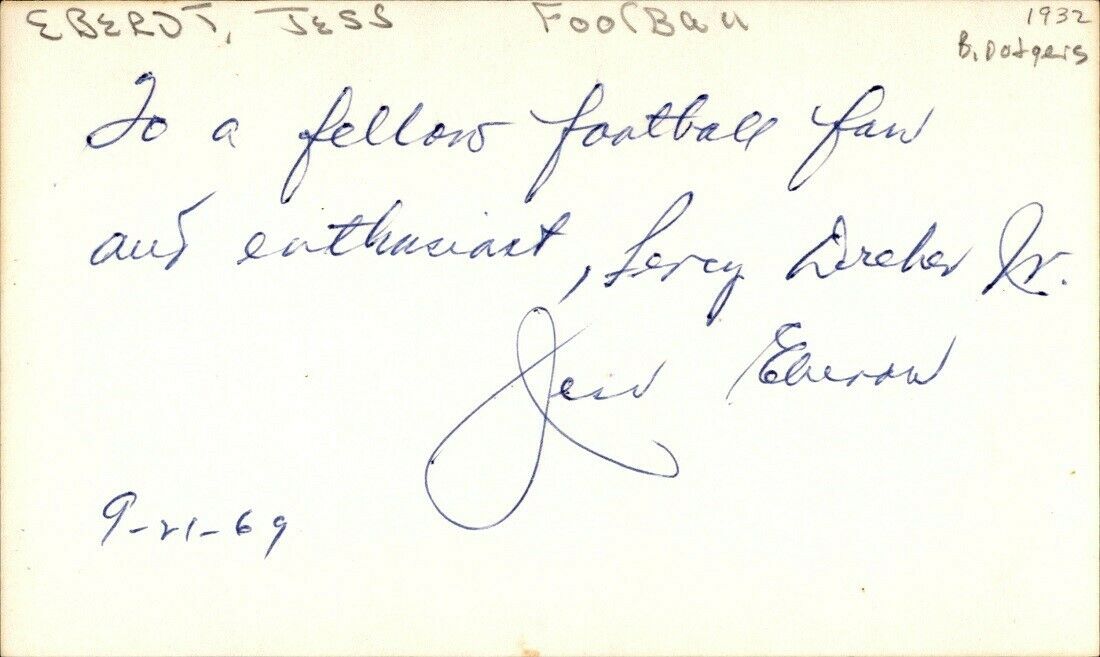 EBERDT, JESS FOOTBALL 1932
B. Dodgers
To a fellow football fan
and enthusiast, Leroy Dreher Jr.
Jess
9-21-69